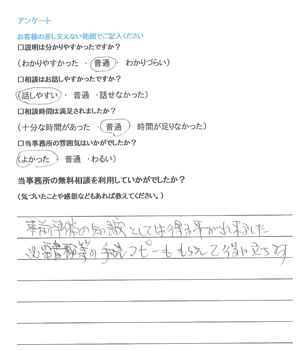 アンケート
お客様の差し支えない範囲でご記入ください
□説明は分かりやすかったですか？
（わかりやすかった ・ 普通 ・ わかりづらい）
□相談はお話しやすかったですか？
（話しやすい ・ 普通 ・話せなかった）
□相談時間は満足されましたか？
（十分な時間があった ・ 普通 ・ 時間が足りなかった）
□当事務所の雰囲気はいかがでしたか？
（よかった ・ 普通 ・わるい）
当事務所の無料相談を利用していかがでしたか？
（気づいたことや感想などもあれば教えてください。）
事前準備の知識としては得る事が出来ました
必要書類等の手続コピーももらえて役に立ちます